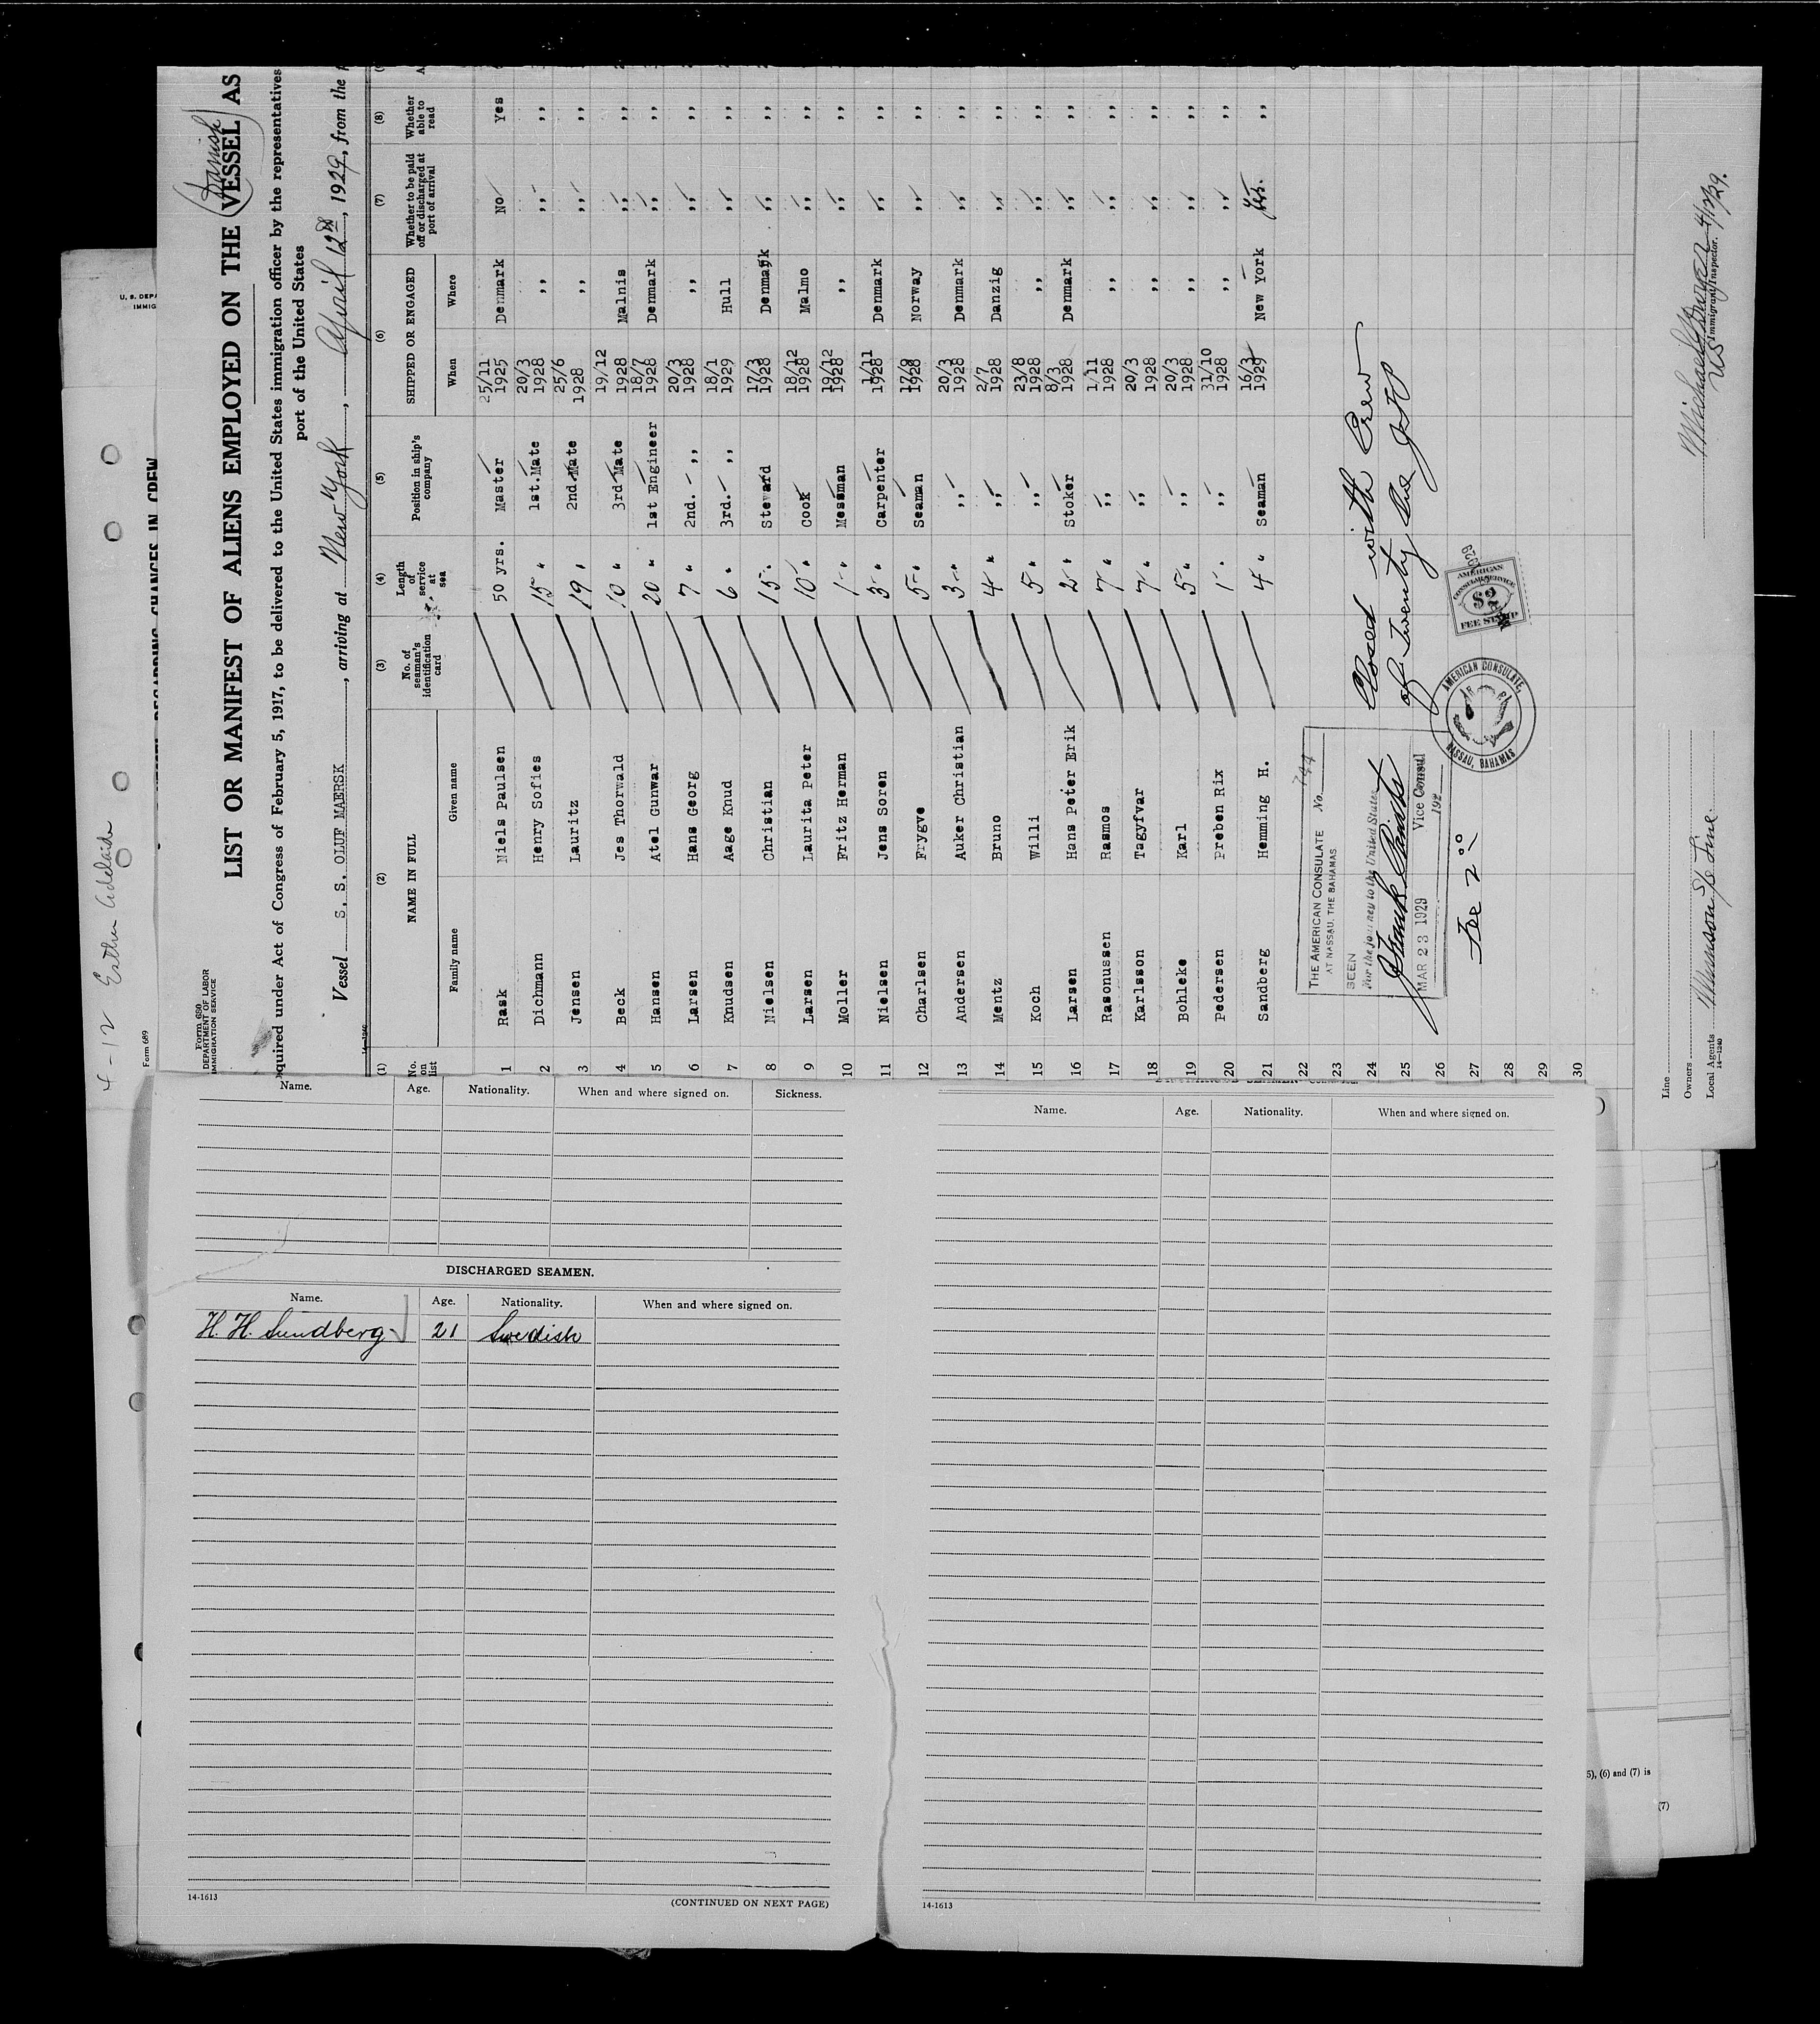 4-12 Esther Adelaide
U. S. DEPA
IMMIG
Form 689
REGARDING CHANGES IN CREW
Form 680
DEPARTMENT OF LABOR
IMMIGRATION SERVICE
(Danish)
LIST OR MANIFEST OF ALIENS EMPLOYED ON THE VESSEL AS
quired under Act of Congress of February 5, 1917, to be delivered to the United States immigration officer by the representatives
port of the United States
Vessel S. S. OLUF MAERSK, arriving at New York, April 12th, 1929, from the
14-1240
(1) (2) (3) (4) (5) (6) (7) (8)
No. on list NAME IN FULL No. of seaman's identification card Length of service at sea Position in ship's company SHIPPED OR ENGAGED Whether to be paid off or discharged at port of arrival Whether able to read
Family name Given name When Where
1 Rask Niels Paulsen 50 yrs. Master 25/11 1925 Denmark No Yes
2 Dichmann Henry Sofies 15 " 1st. Mate 20/3 1928 ,, ,, ,,
3 Jensen Lauritz 19 " 2nd Mate 25/6 1928 ,, ,, ,,
4 Beck Jes Thorwald 10 " 3rd Mate 19/12 1928 Malnis ,, ,,
5 Hansen Atel Gunwar 20 " 1st Engineer 18/7 1928 Denmark ,, ,,
6 Larsen Hans Georg 7 " 2nd. ,, 20/3 1928 ,, ,, ,,
7 Knudsen Aage Knud 6 " 3rd. ,, 18/1 1929 Hull ,, ,,
8 Nielsen Christian 15 " Steward 17/3 1928 Denmark ,, ,,
9 Larsen Laurita Peter 10 " Cook 18/12 1928 Malmo ,, ,,
10 Moller Fritz Herman 1 " Messman 19/12 1928 ,, ,, ,,
11 Nielsen Jens Soren 3 " Carpenter 1/11 1928 Denmark ,, ,,
12 Charlsen Frygve 5 " Seaman 17/9 1928 Norway ,, ,,
13 Andersen Auker Christian 3 " ,, 20/3 1928 Denmark ,, ,,
14 Mentz Bruno 4 " ,, 2/7 1928 Danzig ,, ,,
15 Koch Willi 5 " ,, 23/8 1928 ,, ,, ,,
16 Larsen Hans Peter Erik 2 " Stoker 8/3 1928 Denmark ,, ,,
17 Rasonussen Rasmos 7 " ,, 1/11 1928 ,, ,, ,,
18 Karlsson Tagyfvar 7 " ,, 20/3 1928 ,, ,, ,,
19 Bohleke Karl 5 " ,, 20/3 1928 ,, ,, ,,
20 Pedersen Preben Rix 1 " ,, 31/10 1928 ,, ,, ,,
21 Sandberg Hemming H. 4 " Seaman 16/3 1929 New York Yes. ,,
22
23
24
25
26
27
28
29
30
THE AMERICAN CONSULATE No. 744
AT NASSAU, THE BAHAMAS
SEEN
For the journey to the United States
Vice Consul
MAR 23 1929 192
Fee 2.00
Closed with Crew
of Twenty One
AMERICAN CONSULAR SERVICE
$2
FEE STAMP
AMERICAN CONSULATE
NASSAU, BAHAMAS
Line
Owners
Local Agents Munson S/S Line.
14-1240
US Immigrant Inspector. 4/12/29.
Name. Age. Nationality. When and where signed on. Sickness.
DISCHARGED SEAMEN.
Name. Age. Nationality. When and where signed on.
H. H. Sundberg 21 Swedish
14-1613
(CONTINUED ON NEXT PAGE)
Name. Age. Nationality. When and where signed on.
14-1613
5), (6) and (7) is
(7)